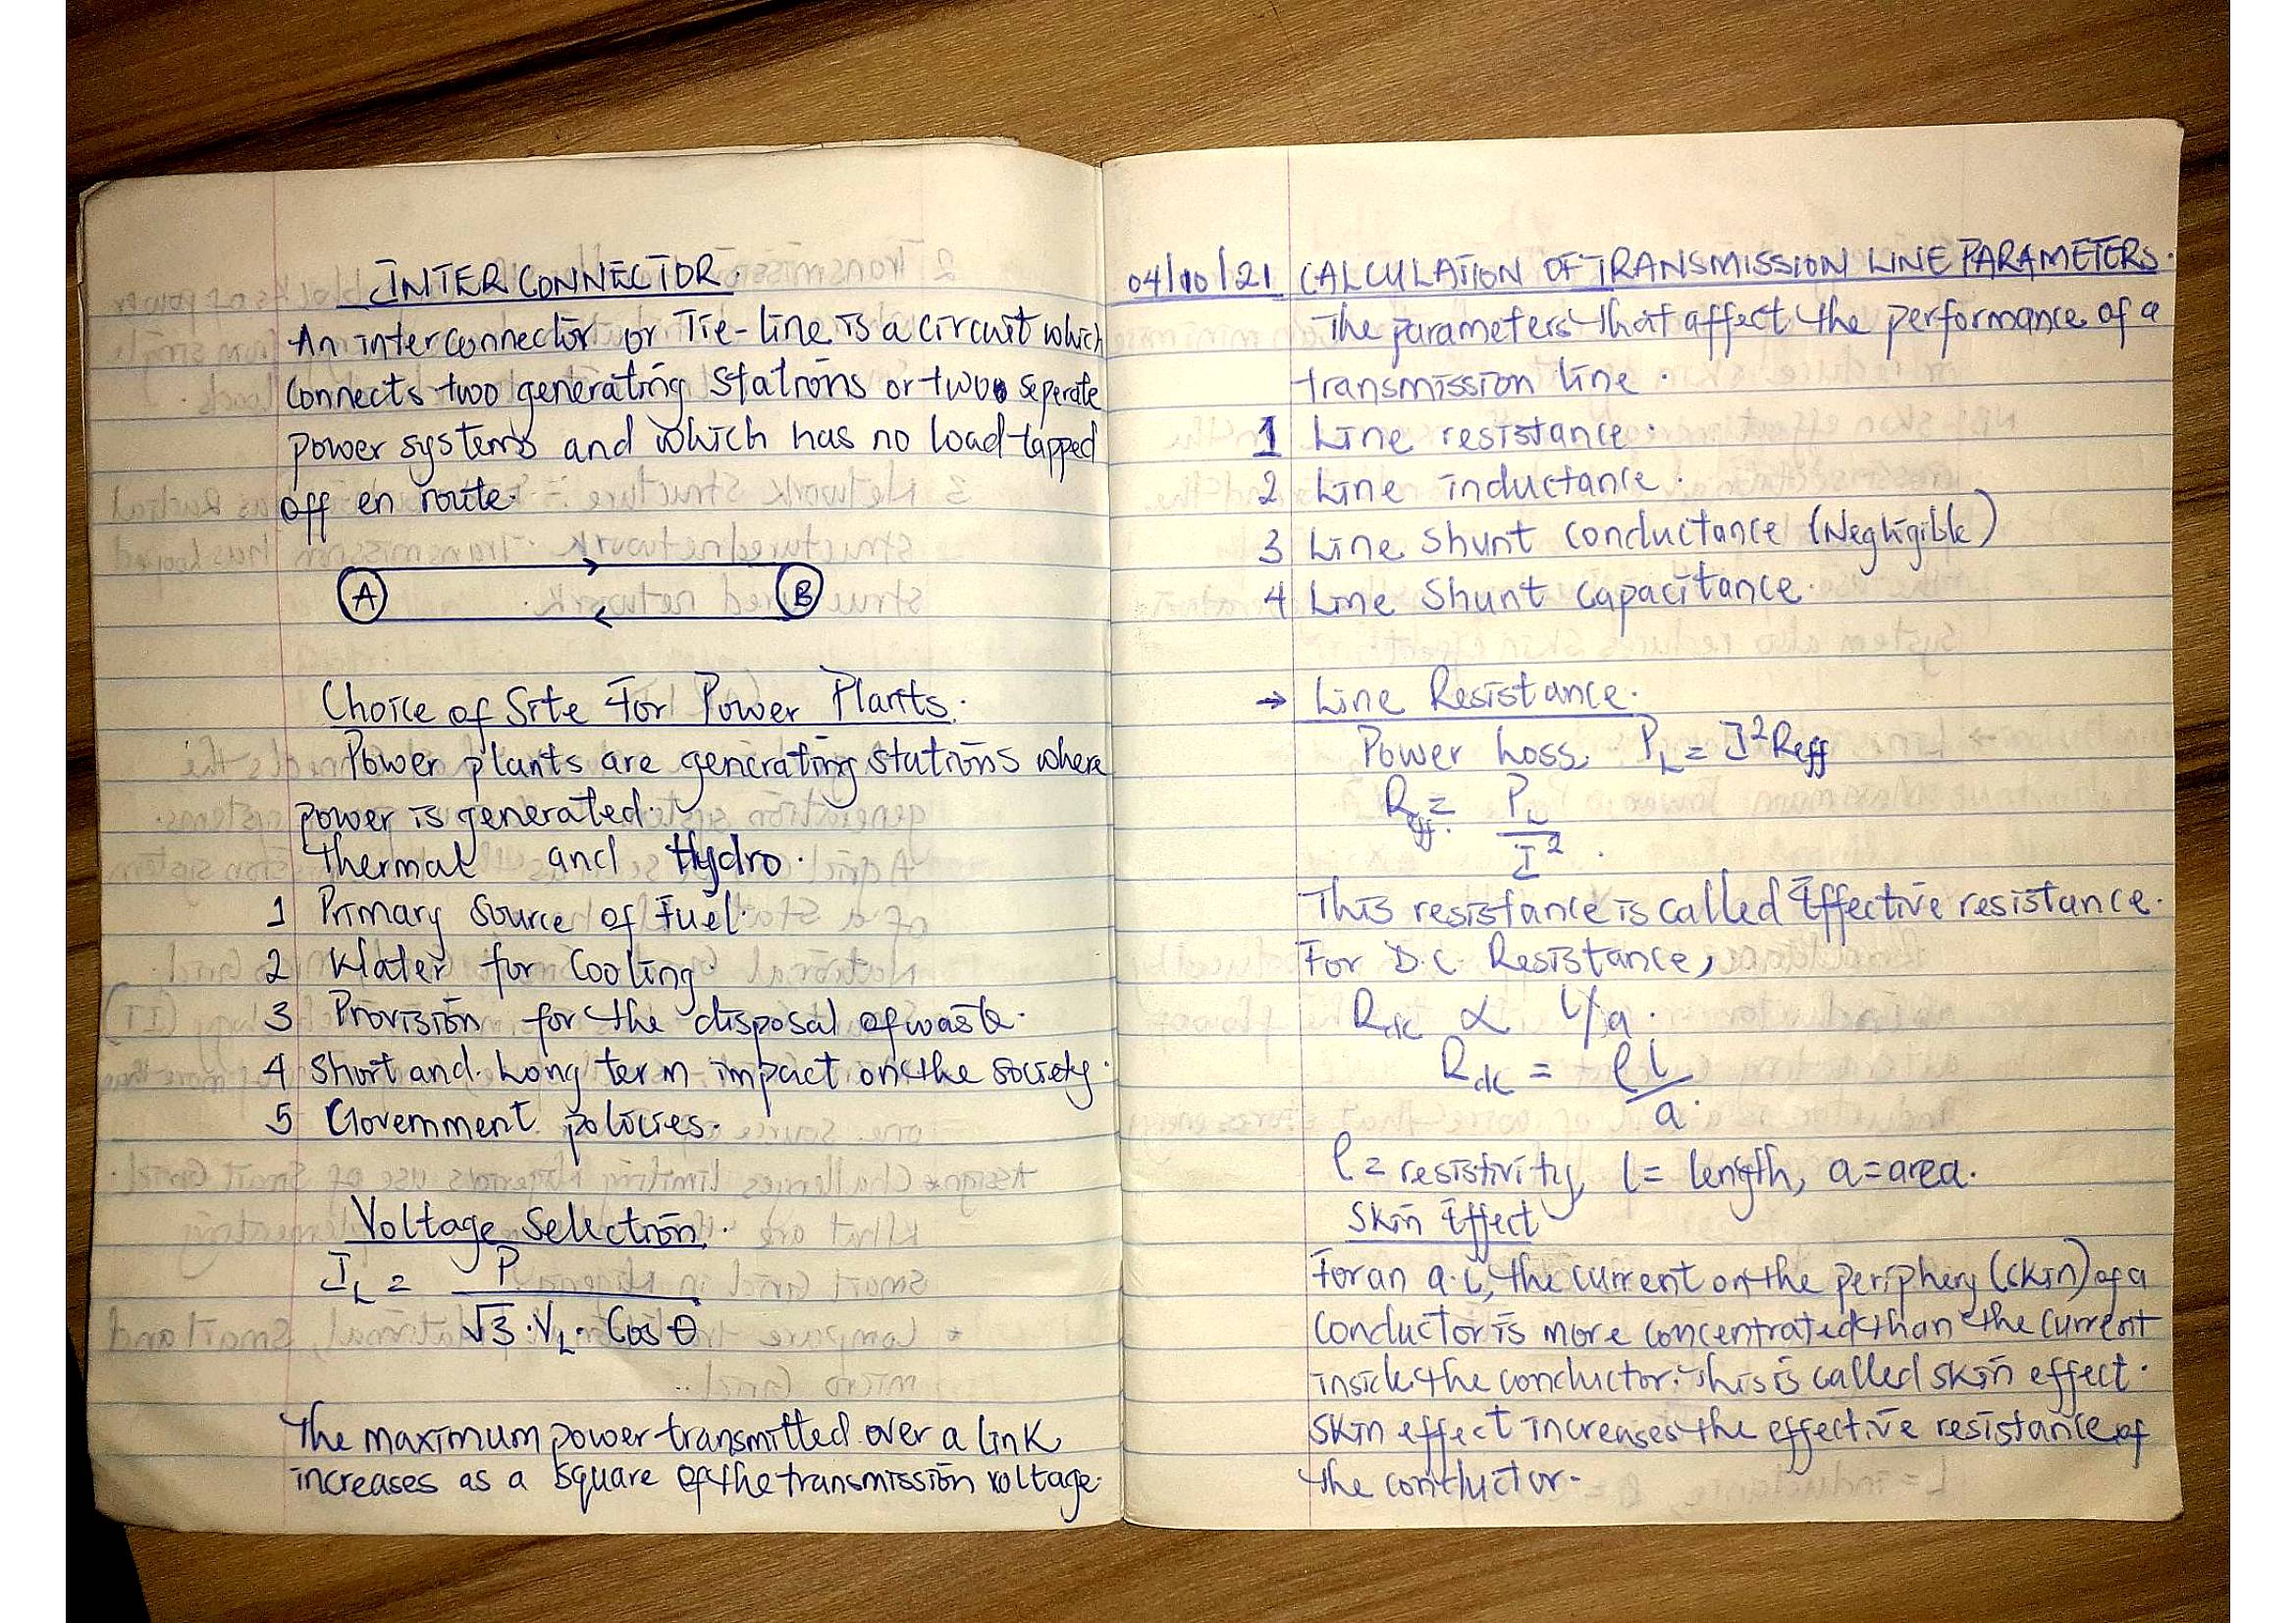 INTER CONNECTOR.
An interconnector or Tie-line is a circuit which
Connects two generating stations or two seperate
power systems and which has no load tapped
off en route.
A B
Choice of Site For Power Plants.
Power plants are generating stations where
power is generated.
Thermal and Hydro.
1 Primary source of Fuel.
2 Water for Cooling.
3 Provision for the disposal of waste.
4 Short and Long term impact on the society.
5 Government policies.
Voltage Selection.
I_L = P
√3 . V_L . Cos θ
The maximum power transmitted over a link
increases as a square of the transmission voltage.
04/10/21 CALCULATION OF TRANSMISSION LINE PARAMETERS.
The parameters that affect the performance of a
transmission line.
1 Line resistance.
2 Line inductance.
3 Line Shunt conductance (Negligible)
4 Line Shunt capacitance.
→ Line Resistance.
Power Loss, P_L = I²Reff
Reff. = P_L
I².
This resistance is called Effective resistance.
For D.C. Resistance,
Rdc ∝ l/a.
Rdc = ρl
a.
ρ = resistivity, l = length, a = area.
Skin Effect
For an a.c, the current on the periphery (skin) of a
conductor is more concentrated than the current
inside the conductor. This is called skin effect.
Skin effect increases the effective resistance of
the conductor.